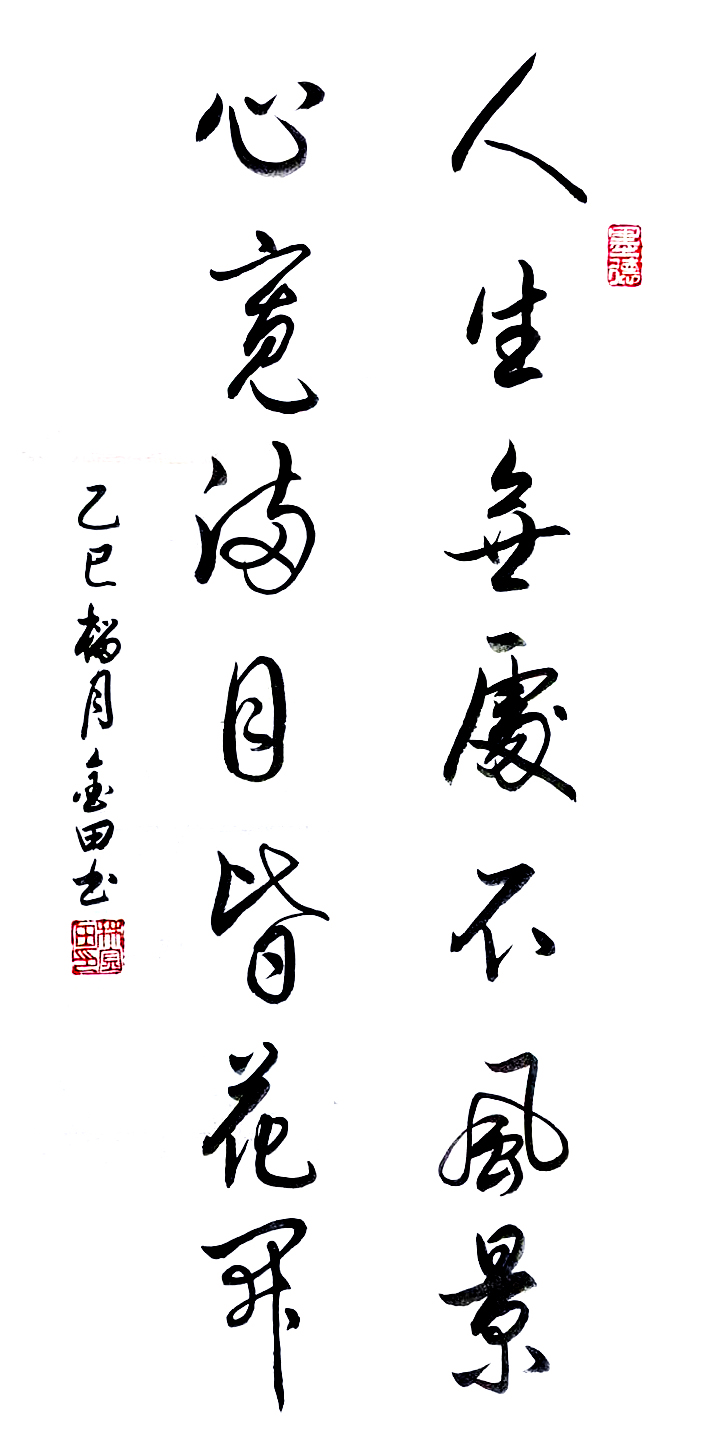 人生無處不風景
心寬滿目皆花開
乙巳榴月金田书
林金田印